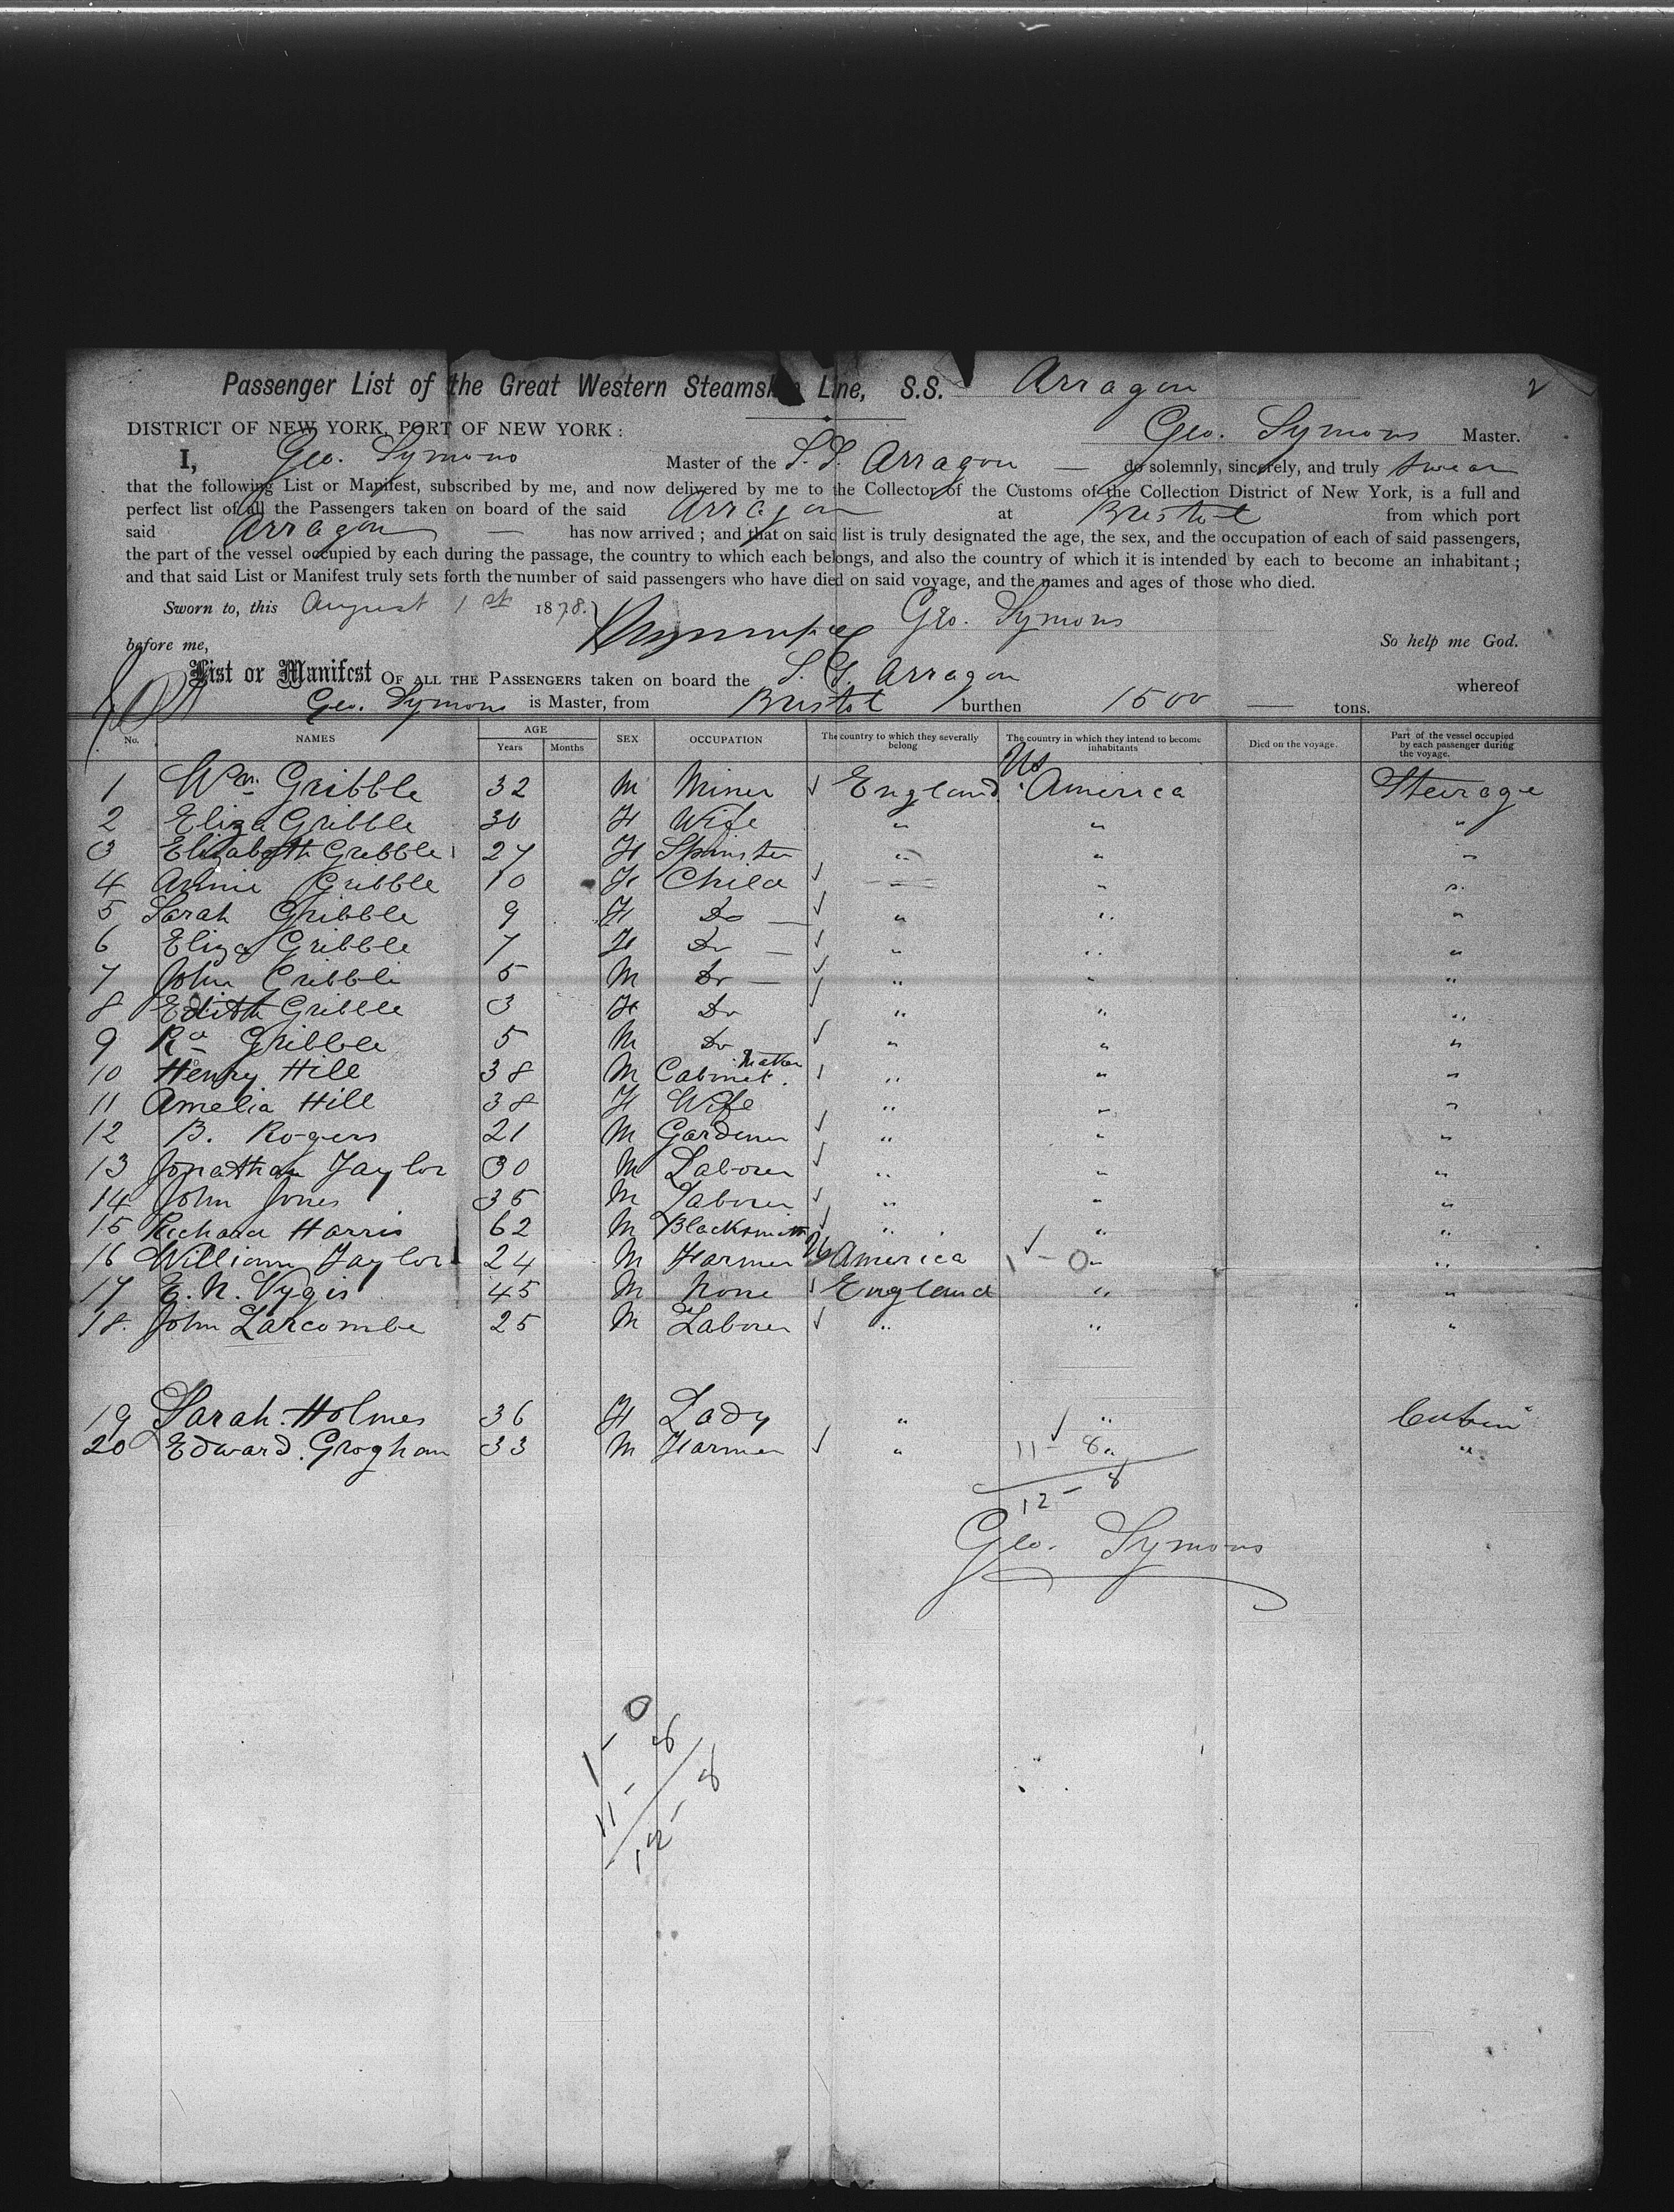 Passenger List of the Great Western Steamship Line, S.S. Arragon 2
DISTRICT OF NEW YORK, PORT OF NEW YORK : Geo. Symons Master.
I, Geo. Symons Master of the S.S. Arragon — do solemnly, sincerely, and truly swear
that the following List or Manifest, subscribed by me, and now delivered by me to the Collector of the Customs of the Collection District of New York, is a full and
perfect list of all the Passengers taken on board of the said Arragon at Bristol from which port
said Arragon — has now arrived ; and that on said list is truly designated the age, the sex, and the occupation of each of said passengers,
the part of the vessel occupied by each during the passage, the country to which each belongs, and also the country of which it is intended by each to become an inhabitant ;
and that said List or Manifest truly sets forth the number of said passengers who have died on said voyage, and the names and ages of those who died.
Sworn to, this August 1st 1878. Geo. Symons
before me, So help me God.
List or Manifest OF ALL THE PASSENGERS taken on board the S.S. Arragon whereof
Geo. Symons is Master, from Bristol burthen 1500 — tons.
No. NAMES AGE Years Months SEX OCCUPATION The country to which they severally belong The country in which they intend to become inhabitants Died on the voyage. Part of the vessel occupied by each passenger during the voyage.
1 Wm Gribble 32 M Miner ✓ England US America Steerage
2 Eliza Gribble 30 F Wife " " "
3 Elizabeth Gribble 27 F Spinster " " "
4 Annie Gribble 10 F Child ✓ " " "
5 Sarah Gribble 9 F Do — ✓ " " "
6 Eliza Gribble 7 F Do — ✓ " " "
7 John Gribble 5 M Do — ✓ " " "
8 Edith Gribble 3 F Do ✓ " " "
9 Rd Gribble 5 M Do ✓ " " "
10 Henry Hill 38 M Cabinet Maker ✓ " " "
11 Amelia Hill 38 F Wife " " "
12 B. Rogers 21 M Gardener ✓ " " "
13 Jonathan Taylor 30 M Laborer ✓ " " "
14 John Jones 35 M Laborer ✓ " " "
15 Richard Harris 62 M Blacksmith ✓ " " "
16 William Taylor 24 M Farmer US America ✓ 1 - 0 " "
17 E. N. Vygis 45 M None ✓ England " "
18. John Larcombe 25 M Laborer ✓ " " "
19 Sarah Holmes 36 F Lady " ✓ " Cabin
20 Edward Grogham 33 M Farmer ✓ " 11 - 8 " "
12 - 8
Geo. Symons
1 - 0
11 - 8
12 - 8